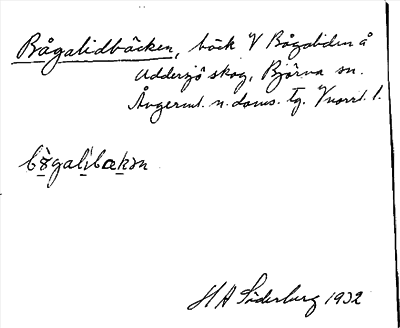 Bågalidbäcken, bäck V Bågaliden å
Uddersjö skog, Björna sn.
Ångerml. n. doms. tg. Vnorrl. l.
bɤ̀galìbækən
H A Söderberg 1932